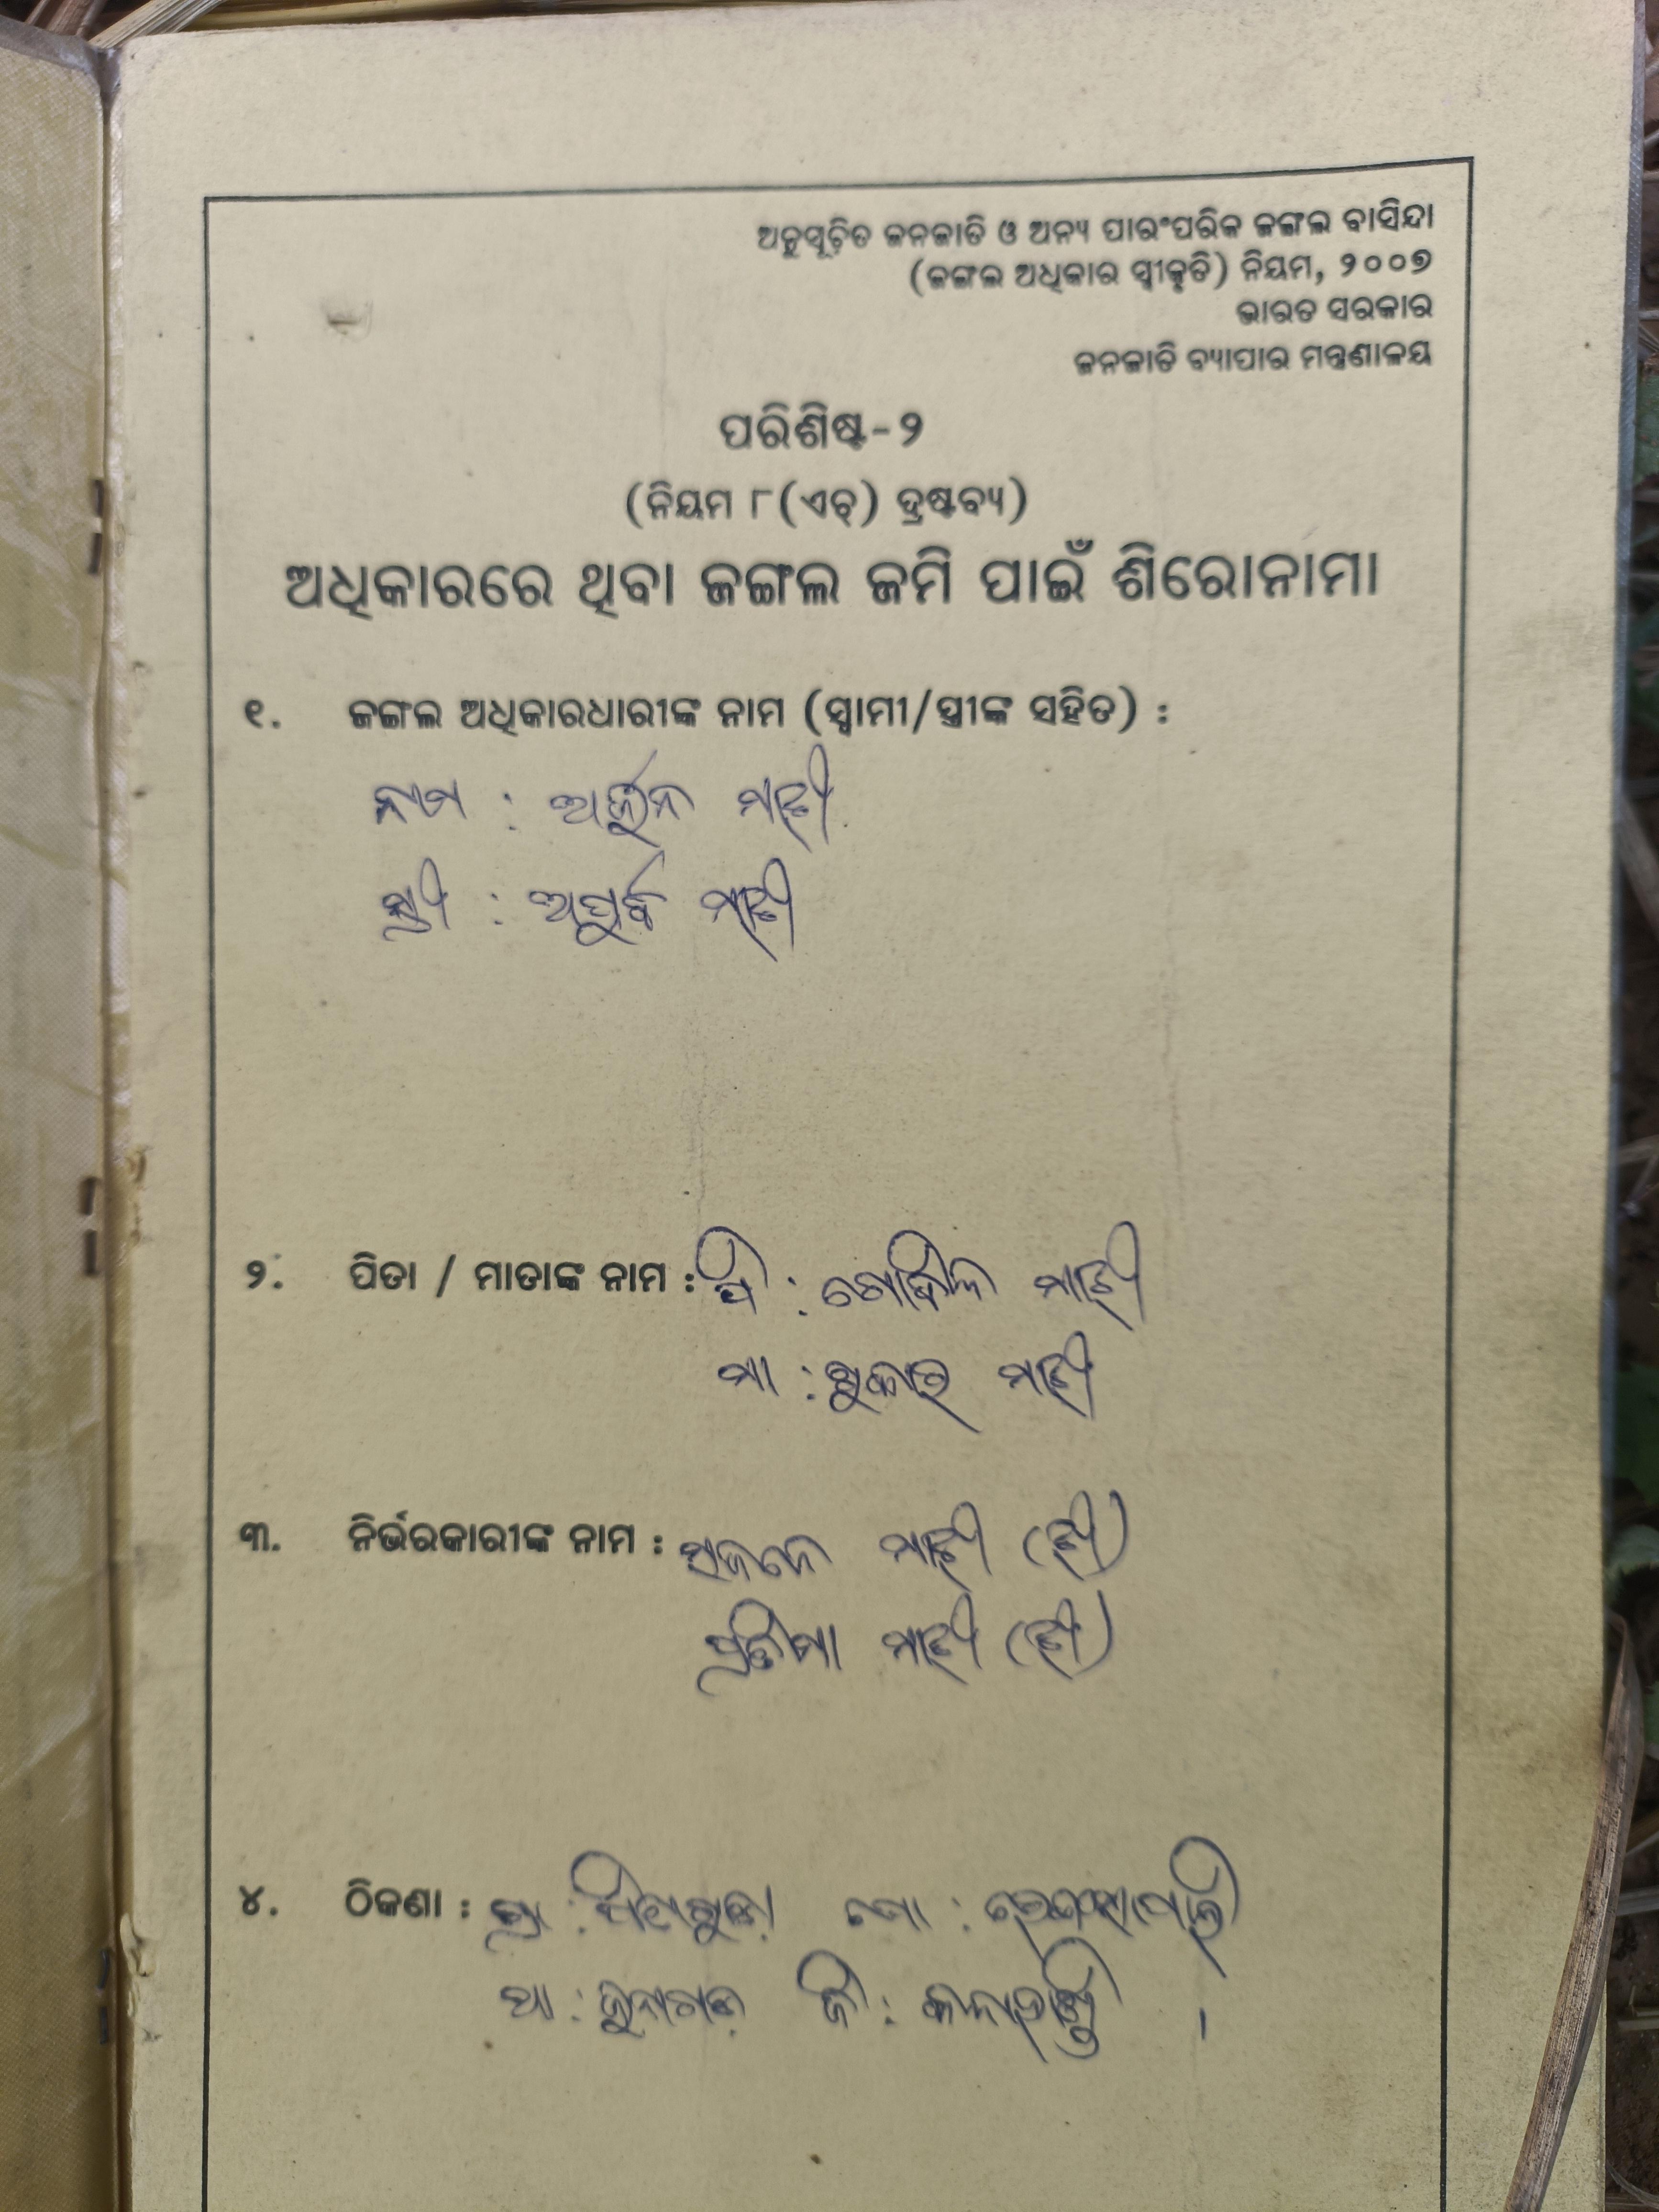 ଅନୁସୂଚିତ ଜନଜାତି ଓ ଅନ୍ୟ ପାରଂପରିକ ଜଙ୍ଗଲ ବାସିନ୍ଦା
(ଜଙ୍ଗଲ ଅଧିକାର ସ୍ୱୀକୃତି) ନିୟମ, ୨୦୦୭
ଭାରତ ସରକାର
ଜନଜାତି ବ୍ୟାପାର ମନ୍ତ୍ରଣାଳୟ
ପରିଶିଷ୍ଟ-୨
(ନିୟମ ୮(ଏଚ୍) ଦ୍ରଷ୍ଟବ୍ୟ)
ଅଧିକାରରେ ଥିବା ଜଙ୍ଗଲ ଜମି ପାଇଁ ଶିରୋନାମା
୧. ଜଙ୍ଗଲ ଅଧିକାରଧାରୀଙ୍କ ନାମ (ସ୍ୱାମୀ/ସ୍ତ୍ରୀଙ୍କ ସହିତ) :
ନାମ : ଅର୍ଜୁନ ମାଝୀ
ସ୍ତ୍ରୀ : ଅପୂର୍ବ ମାଝୀ
୨. ପିତା / ମାତାଙ୍କ ନାମ : ପି : ଗୋବିନ୍ଦ ମାଝୀ
ମା : ସୁକାର ମାଝୀ
୩. ନିର୍ଭରକାରୀଙ୍କ ନାମ : ମାଝୀ (ଝୀ)
ପ୍ରତିମା ମାଝୀ (ଝୀ)
୪. ଠିକଣା : ଗ୍ରା : ପୋ :
ଥା : ଜୁନାଗଡ଼ ଜି : କଳାହାଣ୍ଡି ।